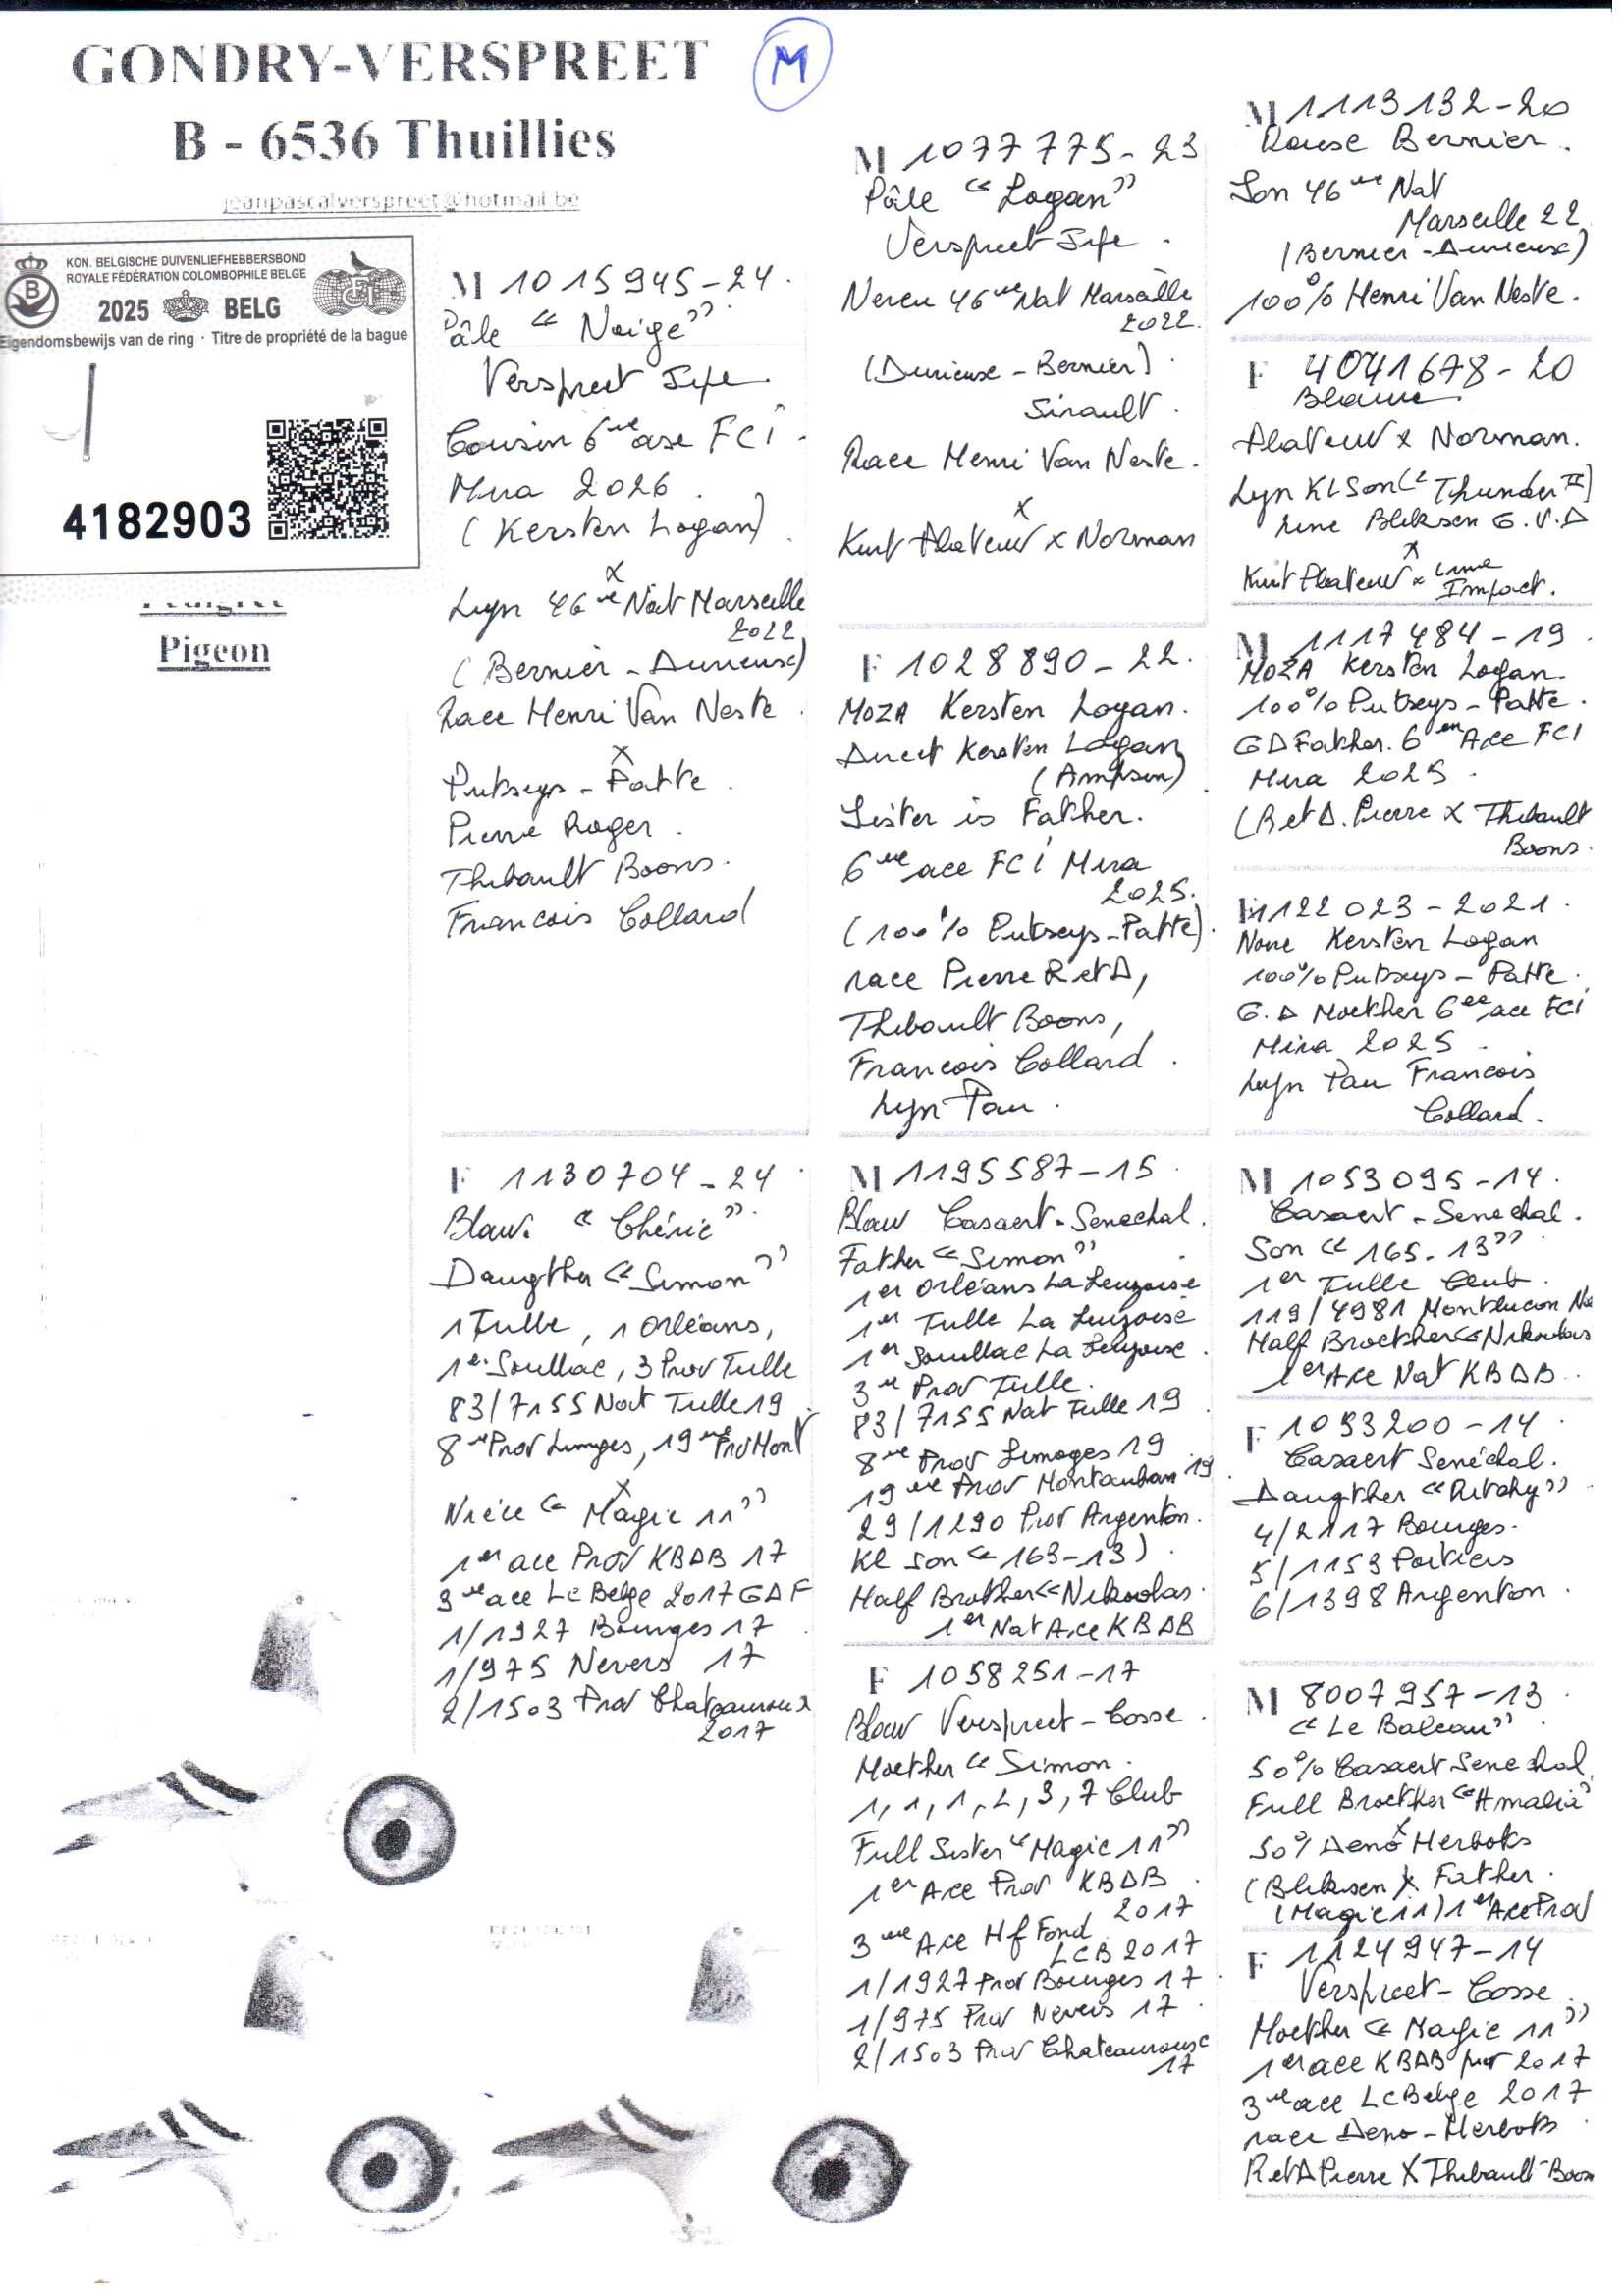 GONDRY-VERSPREET
B - 6536 Thuillies
jeanpascalverspreet@hotmail.be
M
KON. BELGISCHE DUIVENLIEFHEBBERSBOND
ROYALE FÉDÉRATION COLOMBOPHILE BELGE
B
FCI
2025 BELG
Eigendomsbewijs van de ring · Titre de propriété de la bague
4182903
Pedigree
Pigeon
M 1015945-24
Pâle "Neige"
Verspreet
Cousin 6me ase FCI
Mira 2026
(Kersten Logan)
x
Lyn 46me Nat Marseille
2022
(Bernier - Durieux)
Race Henri Van Neste
x
Putseys - Patte
Pierre Roger
Thibault Boons
Francois Collard
F 1130704-24
Blauw. "Chérie"
Daugther "Simon"
1 Tulle, 1 Orléans,
1er Souillac, 3 Prov Tulle
83/7155 Nat Tulle 19
8me Prov Limoges, 19me Prov Mont
x
Nièce "Magic 11"
1er ace Prov KBDB 17
3me ace Le Belge 2017 GDF
1/1927 Bourges 17
1/975 Nevers 17
2/1503 Prov Chateauroux
2017
M 1077775-23
Pâle "Logan"
Verspreet
Neveu 46me Nat Marseille
2022.
(Durieux - Bernier)
Sirault.
Race Henri Van Neste.
x
Kurt Plateuw x Norman
F 1028890-22.
MOZA Kersten Logan.
Direct Kersten Logan
Sister is Father.
6me ace FCI Mira
2025.
(100% Putseys-Patte).
race Pierre R et D,
Thibault Boons,
Francois Collard.
Lyn Pau.
M 1195587-15
Blauw Casaert-Senechal.
Father "Simon"
1er Orléans La Leuzoise
1er Tulle La Leuzoise
1er Souillac La Leuzoise.
3me Prov Tulle.
83/7155 Nat Tulle 19
8me Prov Limoges 19
19me Prov Montauban 19
29/1290 Prov Argenton.
Kl Son "163-13)
Half Brother "Nikoolas.
1er Nat Ace KBDB
F 1058251-17
Blauw Verspreet-Cosse.
Moether "Simon.
1, 1, 1, 2, 3, 7 Club
Full Sister "Magic 11"
1er Ace Prov KBDB
2017
3me Ace Hf Fond
LCB 2017
1/1927 Prov Bourges 17
1/975 Prov Nevers 17
2/1503 Prov Chateauroux
17
M 1113132-20
Rouse Bernier.
Son 46me Nat
Marseille 22
(Bernier-Durieux)
100% Henri Van Neste.
F 4041678-20
Blauw
Plateuw x Norman.
Lyn Kl Son ("Thunder II)
Line Bliksen G.V.D
x
Kurt Plateuw x Line
Impact.
M 1117484-19
MOZA Kersten Logan.
100% Putseys-Patte.
GD Father. 6em Ace FCI
Mira 2025.
(R et D. Pierre x Thibault
Boons.
F 1122023-2021.
Noire Kersten Logan
100% Putseys-Patte.
G.D Moether 6ee ace FCI
Mira 2025.
Lyn Pau Francois
Collard.
M 1053095-14.
Casaert-Senechal.
Son "165-13"
1er Tulle Club.
119/4981 Montlucon Na
Half Broether "Nikoolas
1er Ace Nat KBDB.
F 1093200-14
Casaert Senéchal.
Daugther "Ritchy"
4/2117 Bourges.
5/1153 Poitiers
6/1398 Argenton.
M 8007957-13
"Le Baleau"
50% Casaert Senechal
Full Broether "Amalia"
x
50% Deno Herbots
(Bliksen x Father.
(Magic 11) 1er Ace Prov
F 1124947-14
Verspreet-Cosse
Moether "Magic 11"
1er ace KBDB prov 2017
3me ace LC Belge 2017
race Deno-Herbots
R et D Pierre X Thibault-Boon